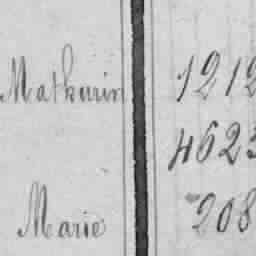 Mathurin 1212
4623
Marie 208